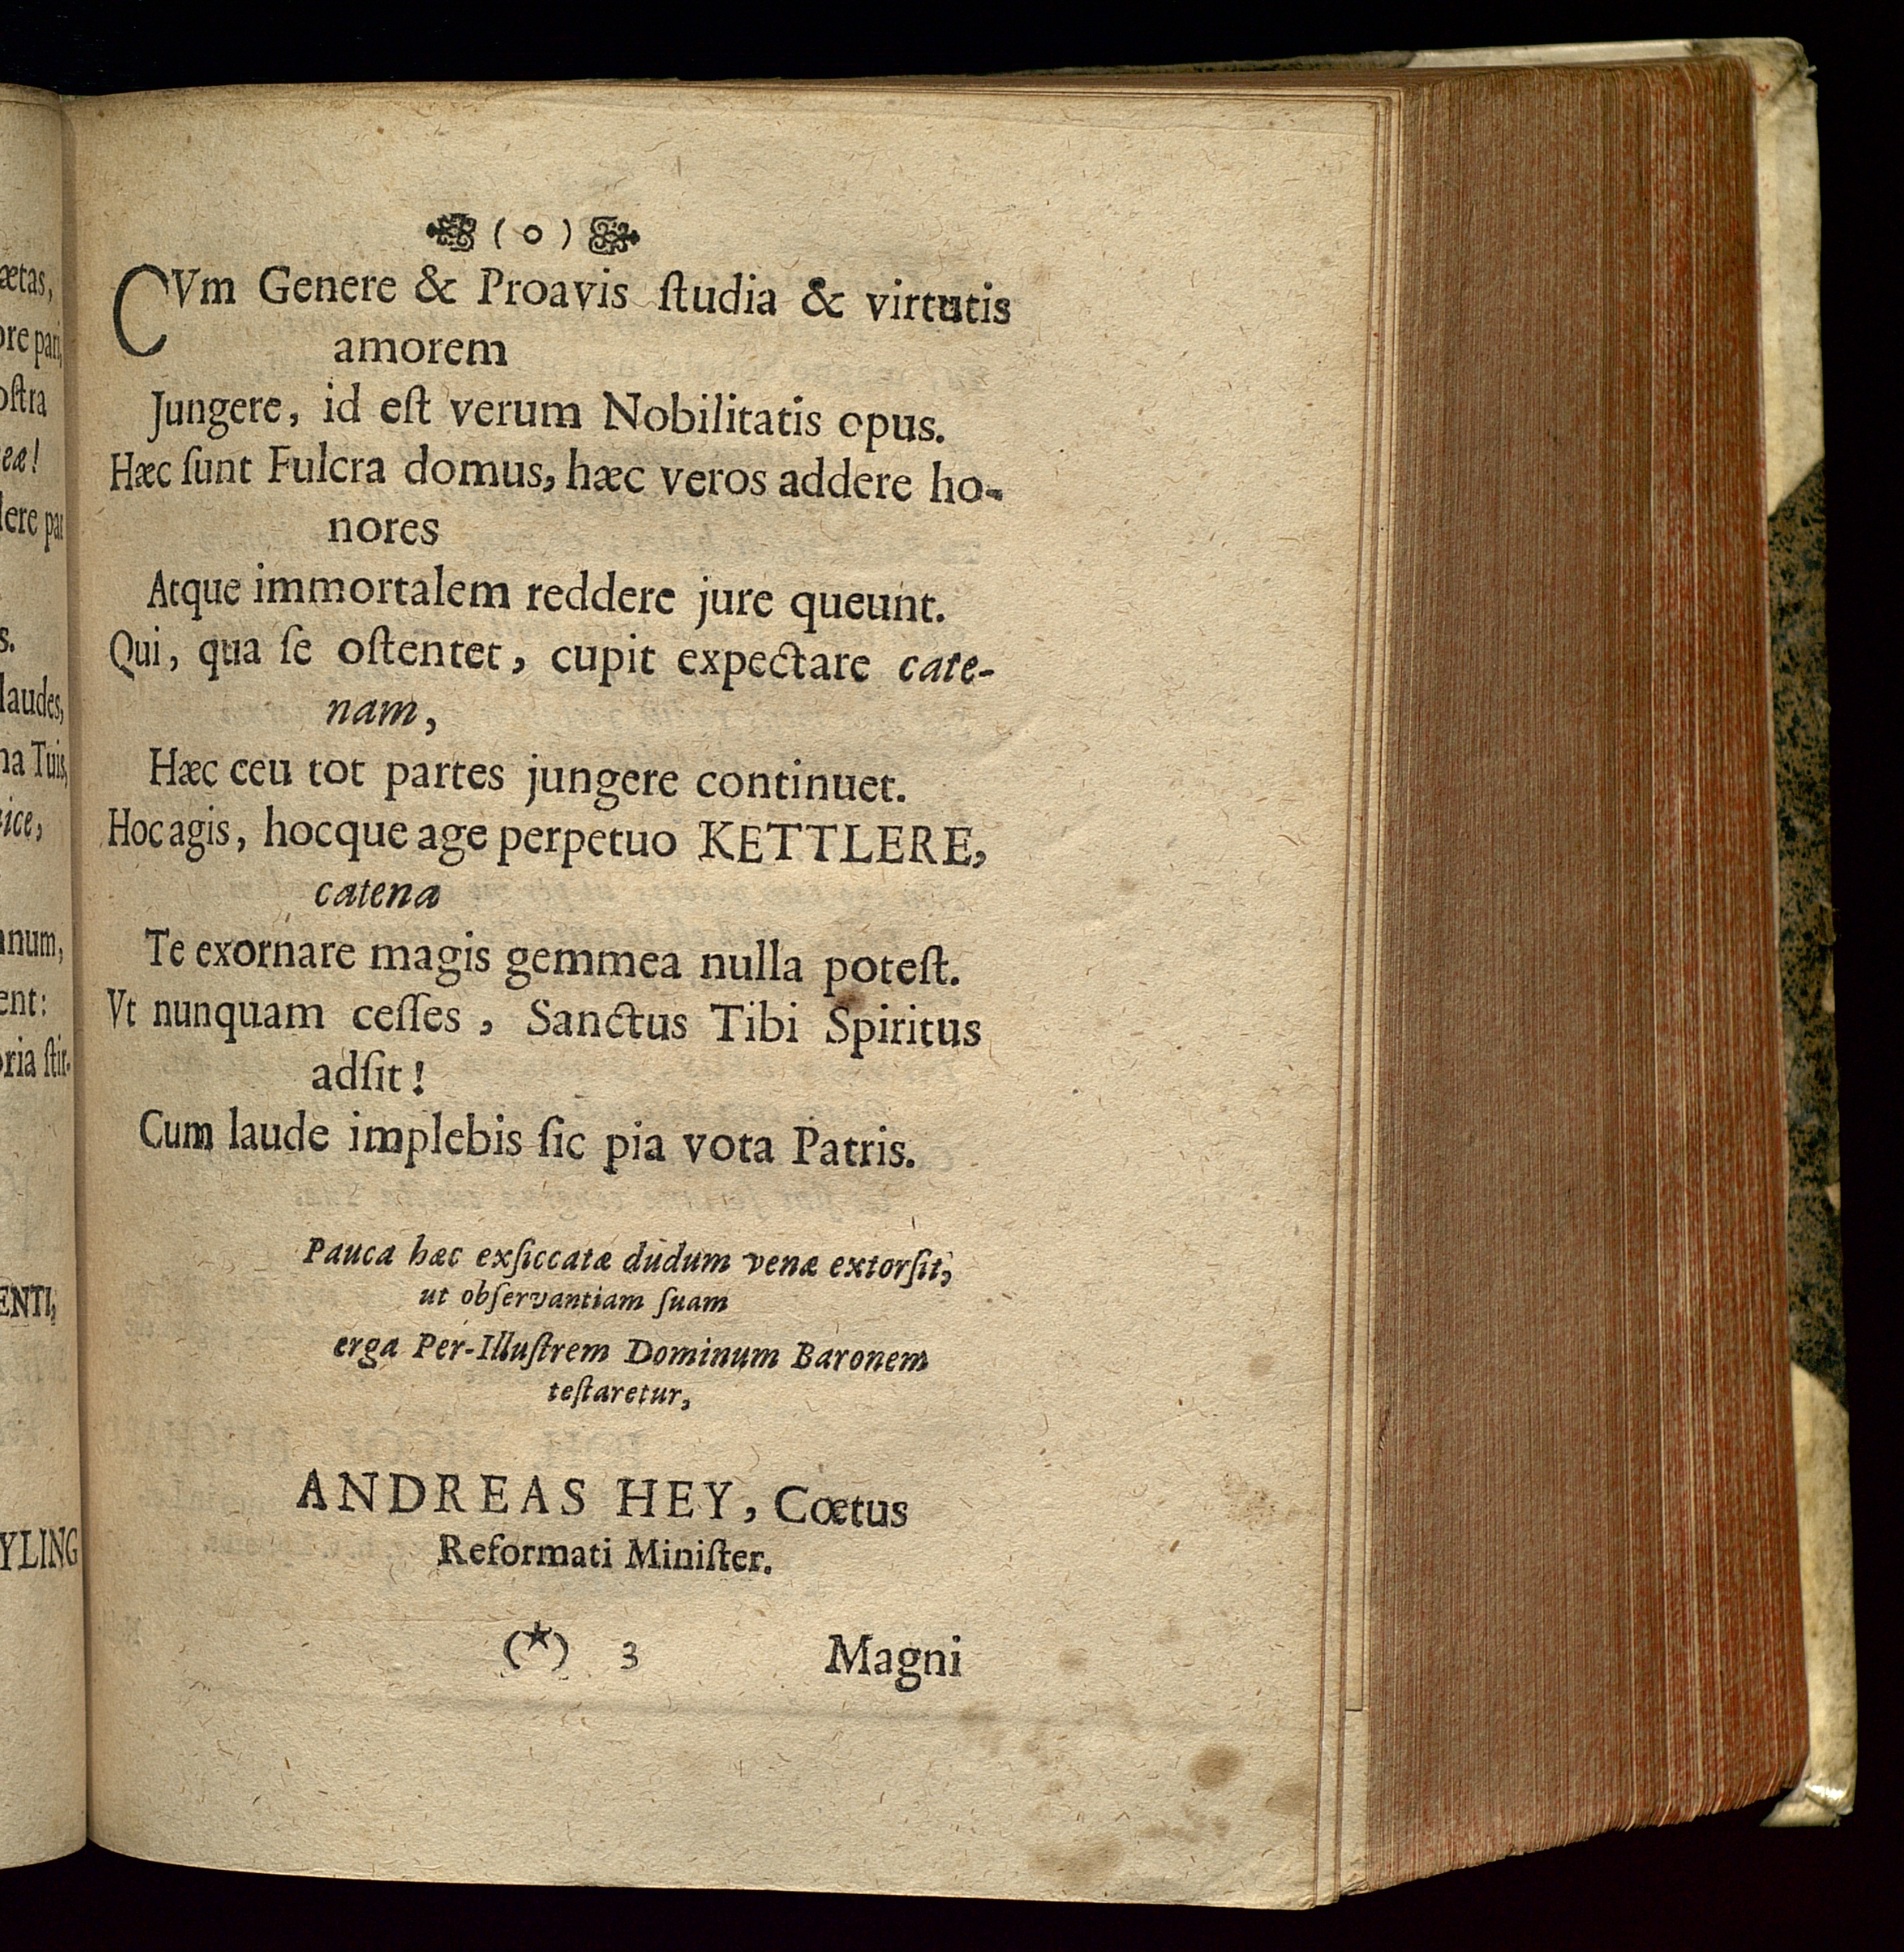 ( o )
CVm Genere & Proavis ſtudia & virtutis
amorem
Jungere, id eſt verum Nobilitatis opus.
Hæc ſunt Fulcra domus, hæc veros addere ho-
nores
Atque immortalem reddere jure queunt.
Qui, qua ſe oſtentet, cupit expectare cate-
nam,
Hæc ceu tot partes jungere continuet.
Hoc agis, hocque age perpetuo KETTLERE,
catena
Te exornare magis gemmea nulla poteſt.
Vt nunquam ceſſes, Sanctus Tibi Spiritus
adſit!
Cum laude implebis ſic pia vota Patris.
Pauca hæc exſiccatæ dudum venæ extorſit,
ut obſervantiam ſuam
erga Per-Illuſtrem Dominum Baronem
teſtaretur,
ANDREAS HEY, Cœtus
Reformati Miniſter.
(★) 3 Magni